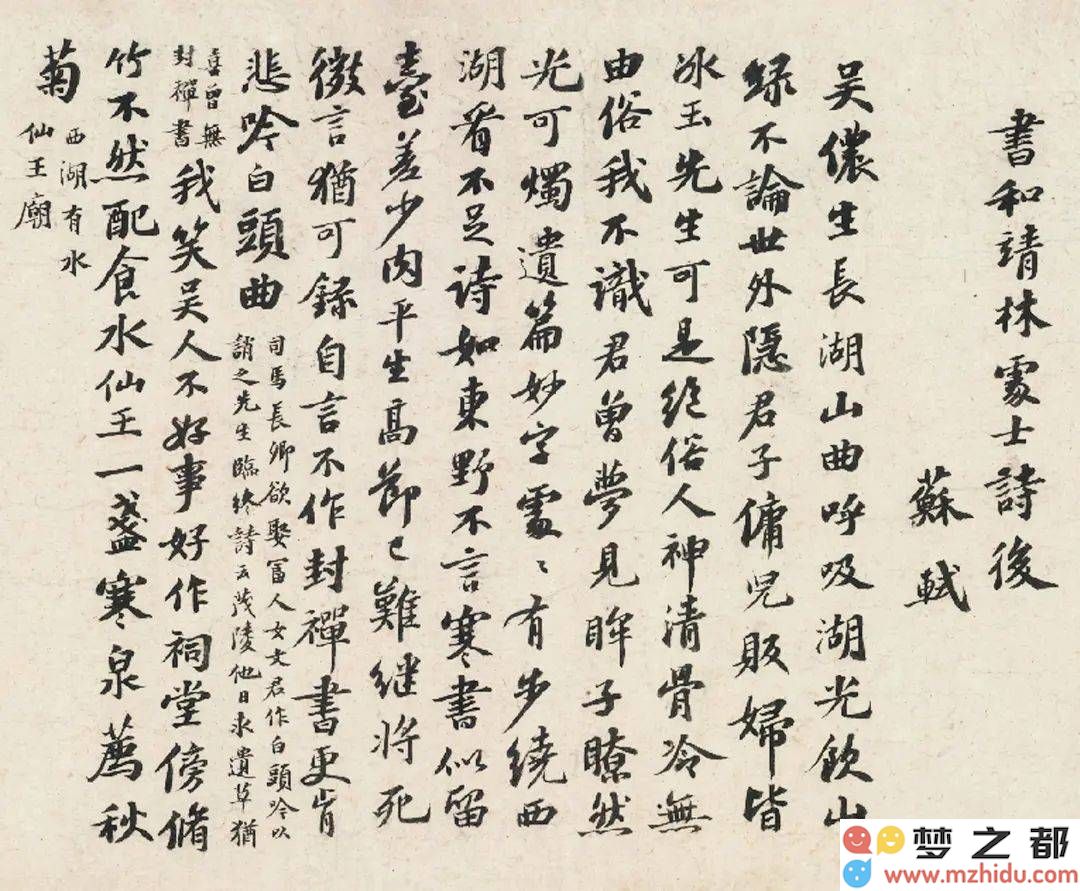 書和靖林處士詩後
蘇軾
吴儂生長湖山曲呼吸湖光飲山
緑不論世外隱君子傭兒販婦皆
冰玉先生可是絶俗人神清骨冷無
由俗我不識君曾夢見眸子瞭然
光可燭遺篇妙字處〻有步繞西
湖看不足詩如東野不言寒書似留
臺差少肉平生高節已難継將死
微言猶可録自言不作封禪書更肯
悲吟白頭曲
司馬長卿欲娶富人女文君作白頭吟以
誚之先生臨終詩云茂陵他日求遺草猶
喜曾無
封禪書
我笑吴人不好事好作祠堂傍脩
竹不然配食水仙王一盞寒泉薦秋
菊
西湖有水
仙王廟
梦之都
www.mzhidu.com